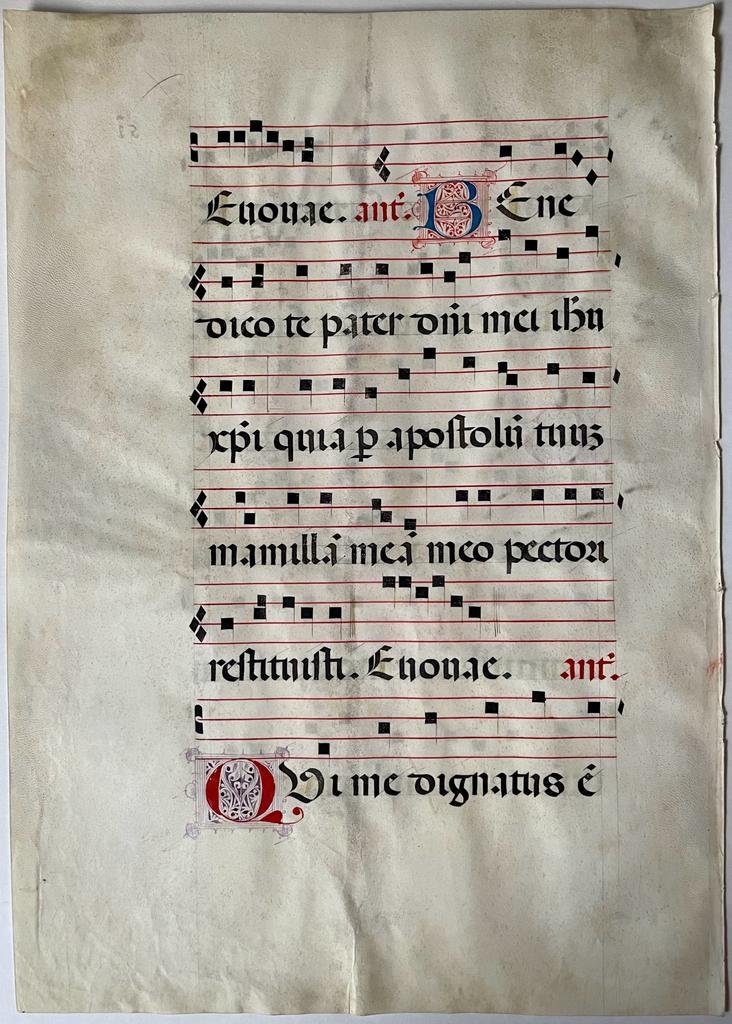 Euouae. ant̃. BEne
dico te pater dñi mei ihũ
xpĩ quia p apostolũ tuuʒ
mamillã meã meo pectori
restituisti. Euouae. ant̃.
QVi me dignatus ẽ